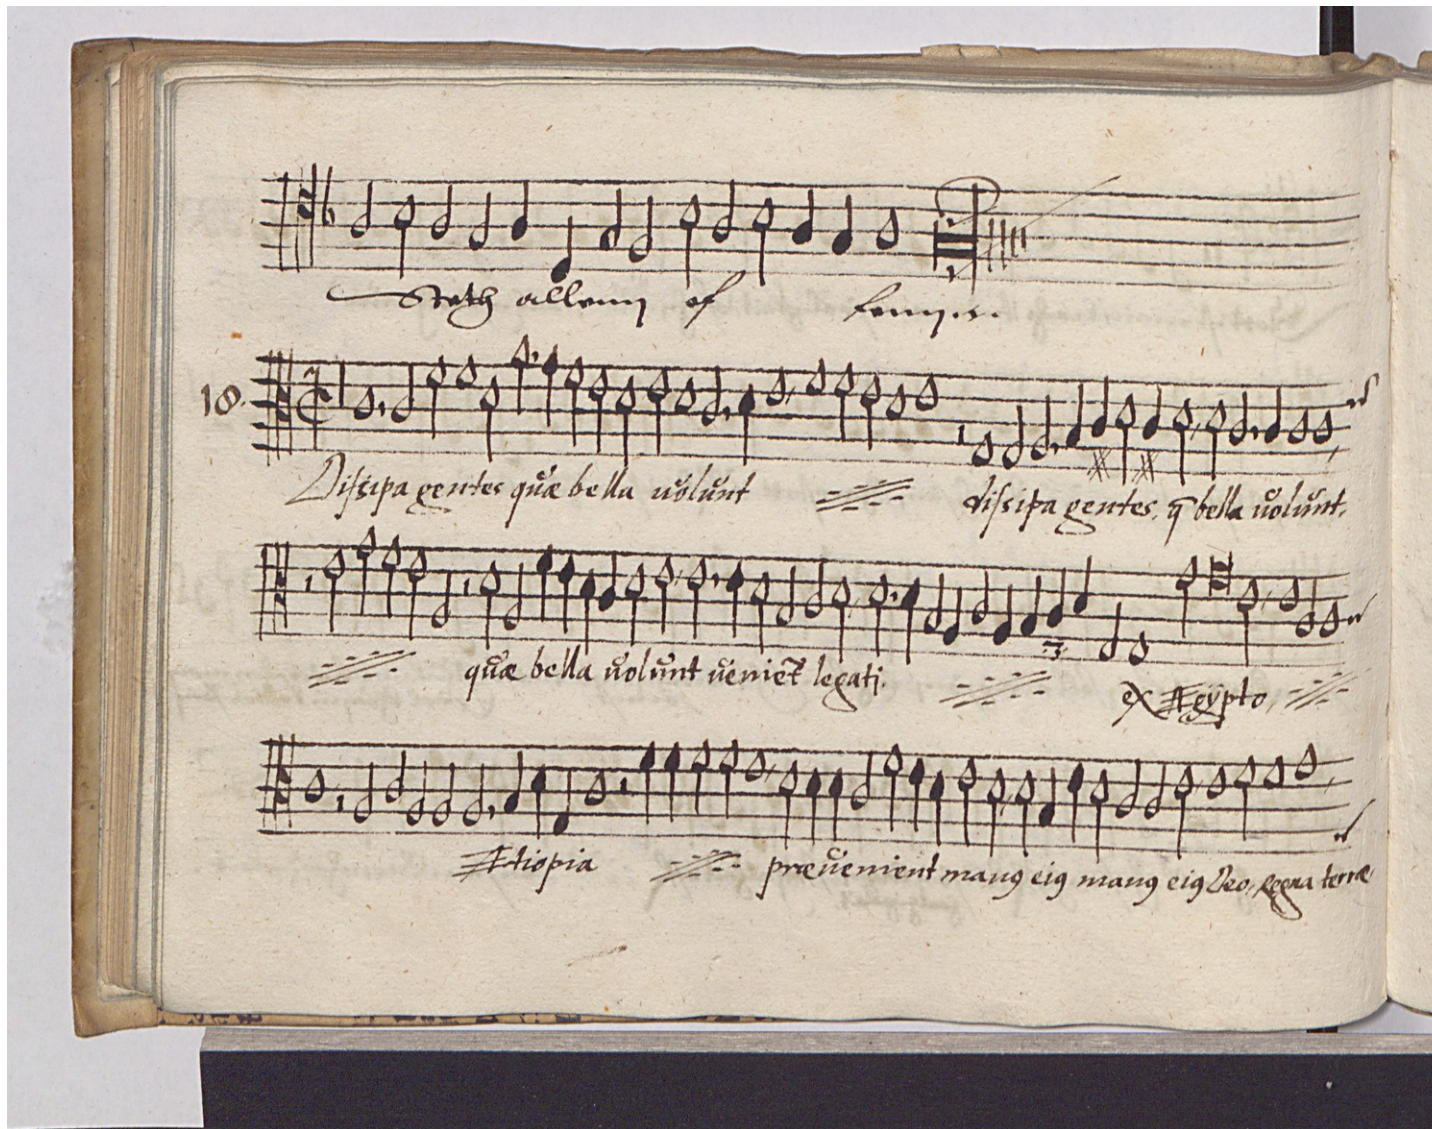 Steth allein
18.
Dissipa gentes quæ bella uolunt dissipa gentes, q̃ bella uolunt.
quæ bella uolunt ueniẽt legatj. ex Ægÿpto
Ætiopia præuenient manꝰ eiꝰ manꝰ eiꝰ Deo, Regna terræ